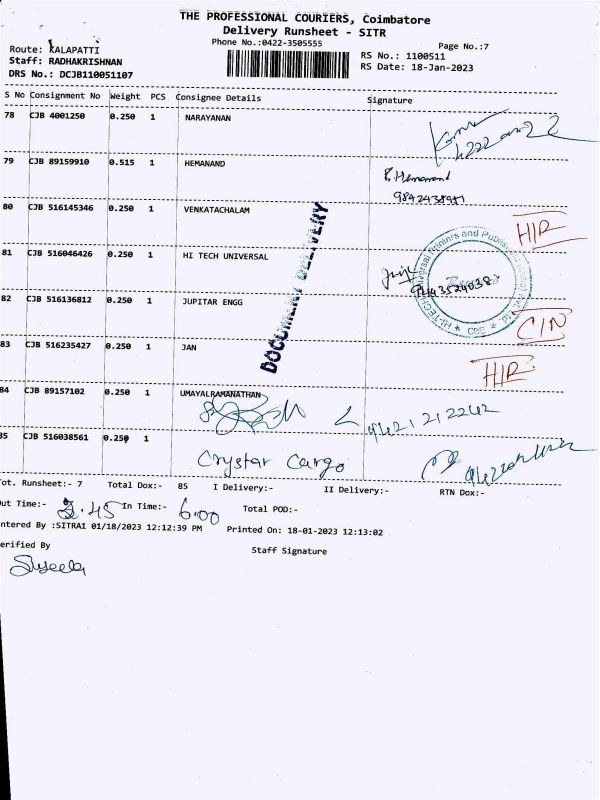 THE PROFESSIONAL COURIERS, Coimbatore
Delivery Runsheet - SITR
Phone No.:0422-3505555
Page No.:7
Route: KALAPATTI
RS No.: 1100511
Staff: RADHAKRISHNAN
RS Date: 18-Jan-2023
DRS No.: DCJB110051107
S No Consignment No Weight PCS Consignee Details Signature
78 CJB 4001250 0.250 1 NARAYANAN
79 CJB 89159910 0.515 1 HEMANAND
80 CJB 516145346 0.250 1 VENKATACHALAM
81 CJB 516046426 0.250 1 HI TECH UNIVERSAL
82 CJB 516136812 0.250 1 JUPITAR ENGG
83 CJB 516235427 0.250 1 JAN
84 CJB 89157102 0.250 1 UMAYALRAMANATHAN
85 CJB 516038561 0.250 1
Crystar Cargo
DOCUMENT DELIVERY
C/N
Tot. Runsheet:- 7 Total Dox:- 85 I Delivery:- II Delivery:- RTN Dox:-
Out Time:- 2.45 In Time:- 6.00 Total POD:-
Entered By :SITRA1 01/18/2023 12:12:39 PM Printed On: 18-01-2023 12:13:02
Verified By
Staff Signature